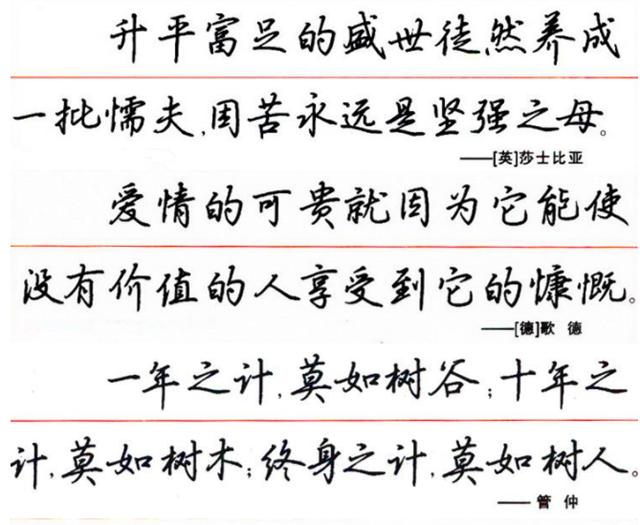 升平富足的盛世徒然养成
一批懦夫,困苦永远是坚强之母。
——[英]莎士比亚
爱情的可贵就因为它能使
没有价值的人享受到它的慷慨。
——[德]歌 德
一年之计,莫如树谷;十年之
计,莫如树木;终身之计,莫如树人。
—— 管 仲